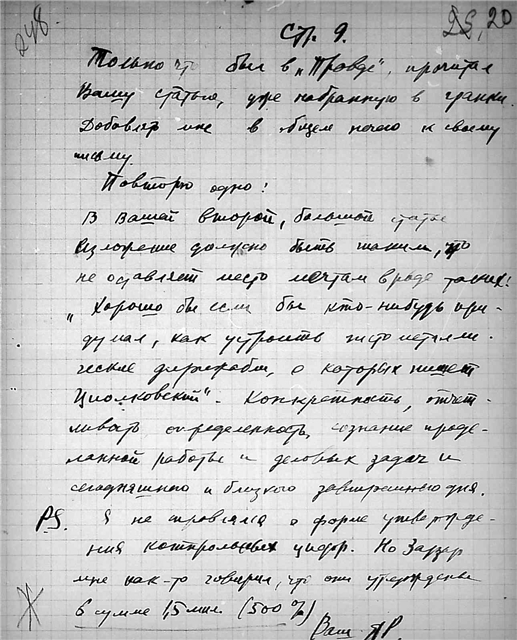 248
25, 20
Стр. 9.
Только что был в „Правде", прочитал
Вашу статью, уже набранную в гранки.
Добавлять мне в общем нечего к своему
письму.
Повторю одно!
В Вашей второй, большой статье
изложение должно быть таким, что
не оставляет место мечтам вроде таких:
„Хорошо бы если бы кто-нибудь при-
думал, как устроить чисто металли-
ческие дирижабли, о которых пишет
Циолковский". Конкретность, отчет-
ливать определенность, сознание проде-
ланной работы и деловых задач и
сегодняшнего и близкого завтрашнего дня.
P.S. Я не справлялся о форме утвержде-
ния контрольных цифр. Но
мне как-то говорил, что они утверждены
в сумме 1,5 мил. (500%)
Ваш